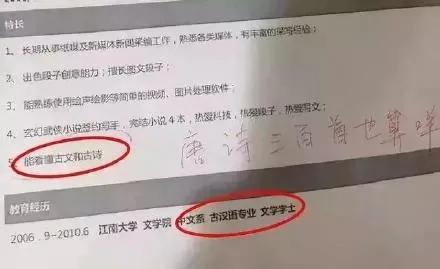 特长
1、长期从事纸媒及新媒体新闻采编工作，熟悉各类媒体，有丰富的采写经验；
2、出色段子创意能力；擅长图文段子；
3、能熟练使用绘声绘影等简单的视频、图片处理软件；
4、玄幻武侠小说签约写手，完结小说4本，热爱科技，热爱段子，热爱写文；
5、能看懂古文和古诗
唐诗三百首也算咩
教育经历
2006.9-2010.6 江南大学 文学院 中文系 古汉语专业 文学学士